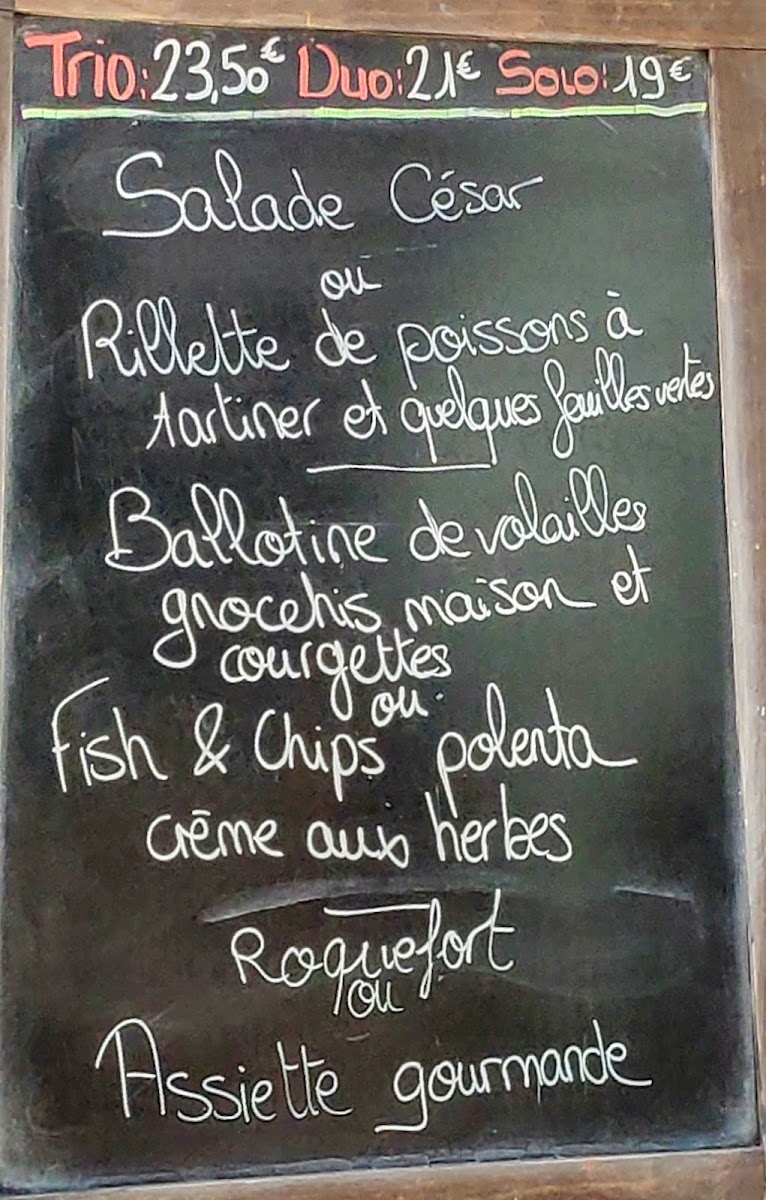 Trio: 23,50€ Duo: 21€ Solo: 19€
Salade César
ou
Rillette de poissons à
tartiner et quelques feuilles vertes
Ballotine de volailles
gnocchis maison et
courgettes
ou
Fish & Chips polenta
crème aux herbes
Roquefort
ou
Assiette gourmande